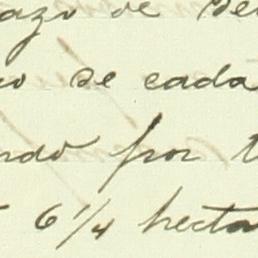 azo de se
o de cada
ndo por t
6 1/4 hecta